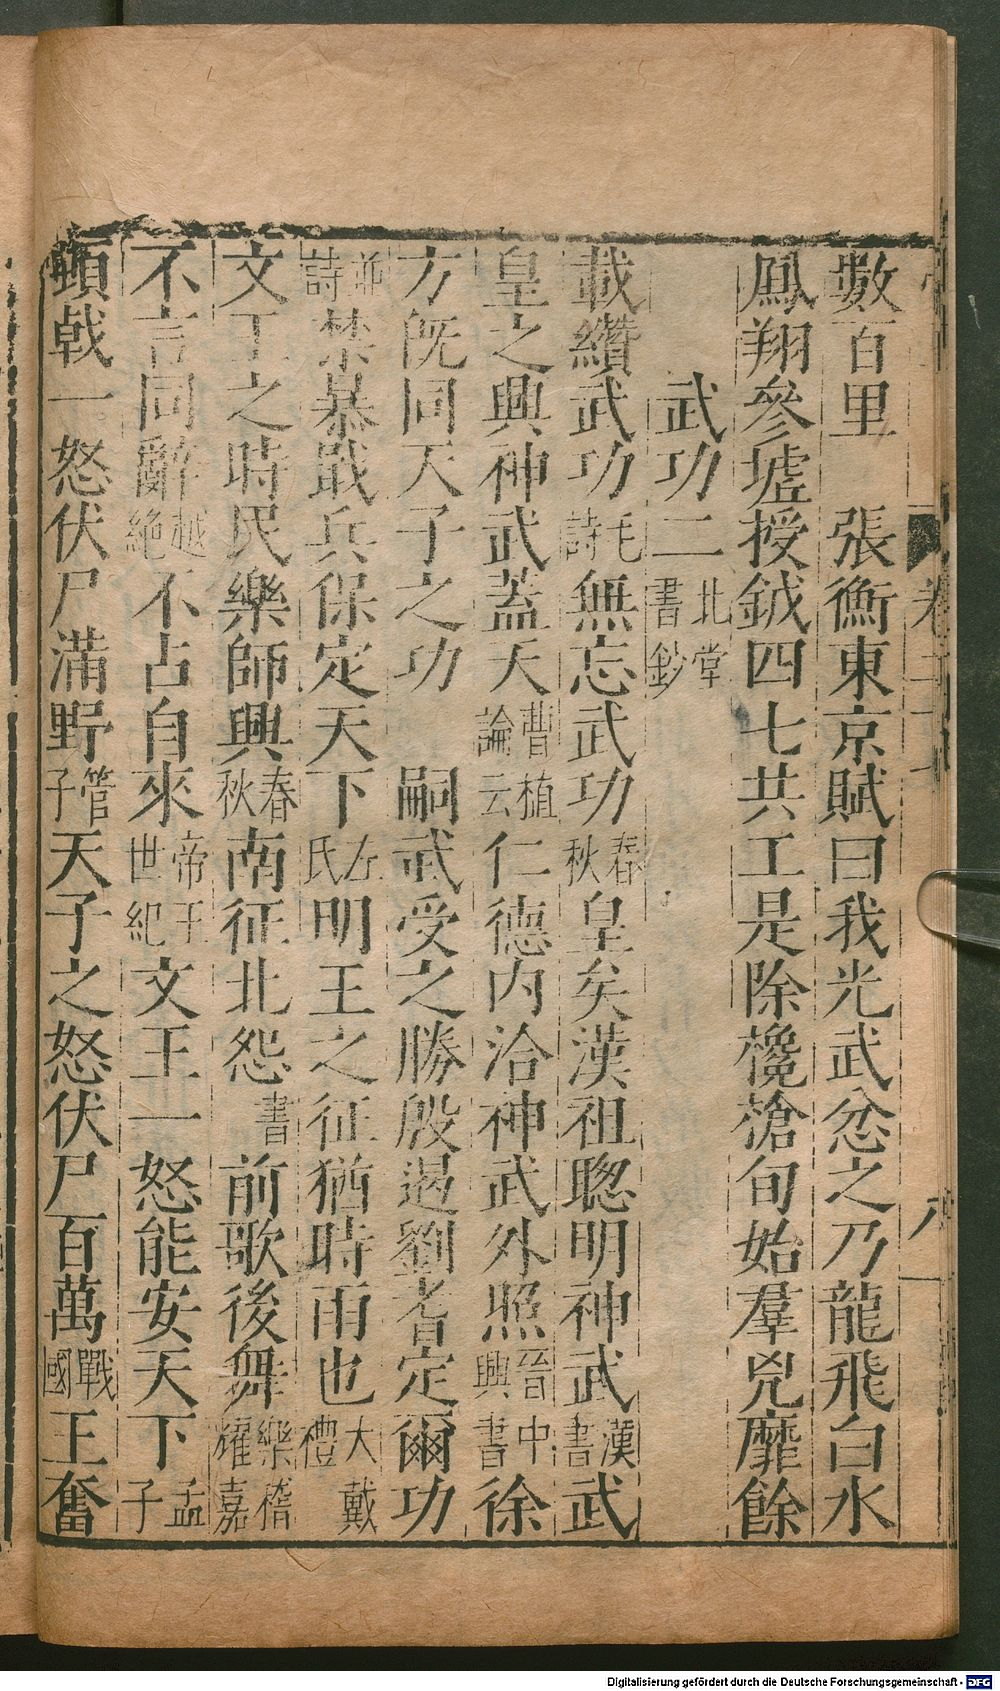 數百里　張衡東京賦曰我光武忿之乃龍飛白水
鳳翔參墟授鉞四七共工是除欃槍旬始羣兇靡餘
武功二北堂書鈔
載纘武功毛詩無忘武功春秋皇矣漢祖聰明神武漢書武
皇之興神武蓋天曹植論云仁德內洽神武外照晉中興書徐
方旣同天子之功　嗣武受之勝殷遏劉耆定爾功
並詩禁暴戢兵保定天下左氏明王之征猶時雨也大戴禮
文王之時民樂師興春秋南征北怨書前歌後舞樂稽耀嘉
不言同辭越絶不占自來帝王世紀文王一怒能安天下孟子
頓戟一怒伏尸滿野管子天子之怒伏尸百萬戰國王奮
卷二十七
八
Digitalisierung gefördert durch die Deutsche Forschungsgemeinschaft - DFG